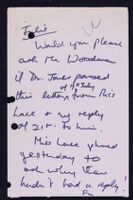 Julie
Would you please
ask Mr Woodman
if Dr. Jane passed
of 7th July
this letter from Miss
Lace & my reply
of 21st to him.
Miss Lace phoned
yesterday to
ask why she
hadn't had a reply!